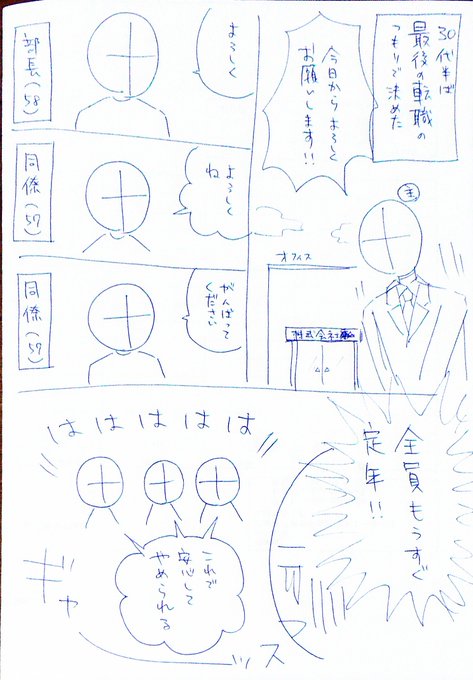 30代半ば
最後の転職の
つもりで決めた
今日からよろしく
お願いします!!
主
オフィス
株式会社
よろしく
部長(58)
よろしく
ね
同僚(57)
がんばって
ください
同僚(59)
全員もうすぐ
定年!!
はははははは
これで
安心して
やめられる
ギャーッス